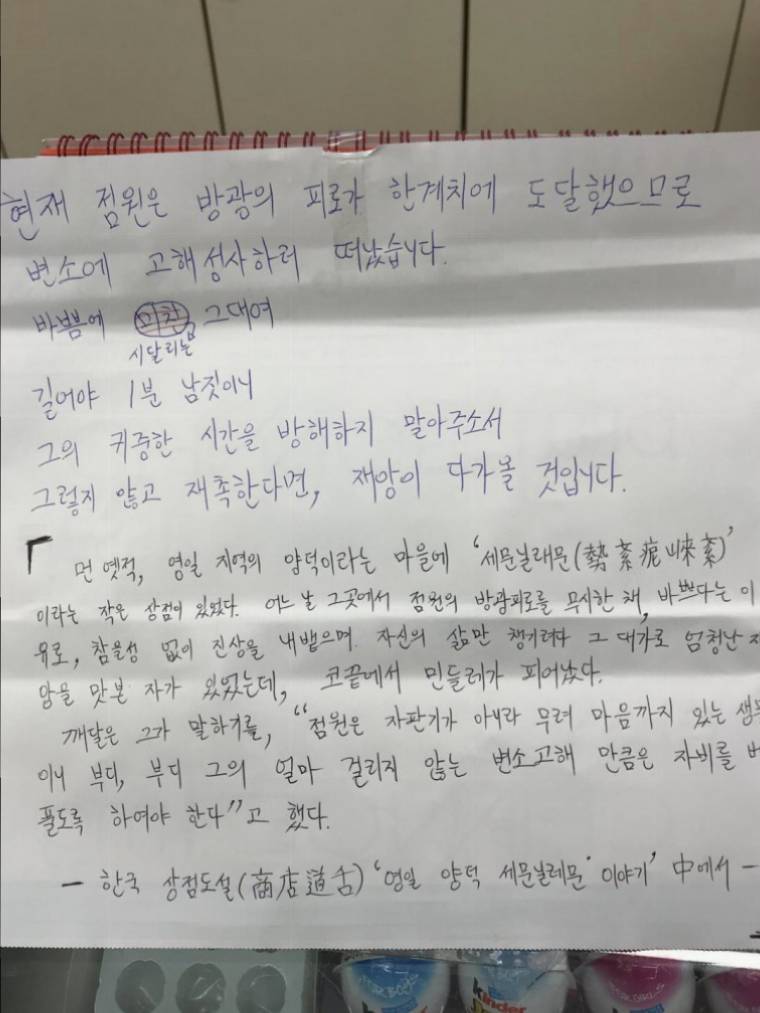 현재 점원은 방광의 피로가 한계치에 도달했으므로
변소에 고해성사하러 떠났습니다.
바쁨에 미친 그대여
시달리는
길어야 1분 남짓이니
그의 귀중한 시간을 방해하지 말아주소서
그렇지 않고 재촉한다면, 재앙이 다가올 것입니다.
「 먼 옛적, 영일 지역의 양덕이라는 마을에 '세문닐래문(勢紊痆崍紊)'
이라는 작은 상점이 있었다. 어느 날 그곳에서 점원의 방광피로를 무시한 채, 바쁘다는 이
유로, 참을성 없이 진상을 내뱉으며 자신의 삶만 챙기려다 그 대가로 엄청난 재
앙을 맛본 자가 있었는데, 코끝에서 민들레가 피어났다.
깨달은 그가 말하기를, "점원은 자판기가 아니라 무려 마음까지 있는 생물
이니 부디, 부디 그의 얼마 걸리지 않는 변소고해 만큼은 자비를 베
풀도록 하여야 한다"고 했다.
- 한국 상점도설(商店道舌) '영일 양덕 세문닐레문 이야기' 中에서 -
kinder
kinder